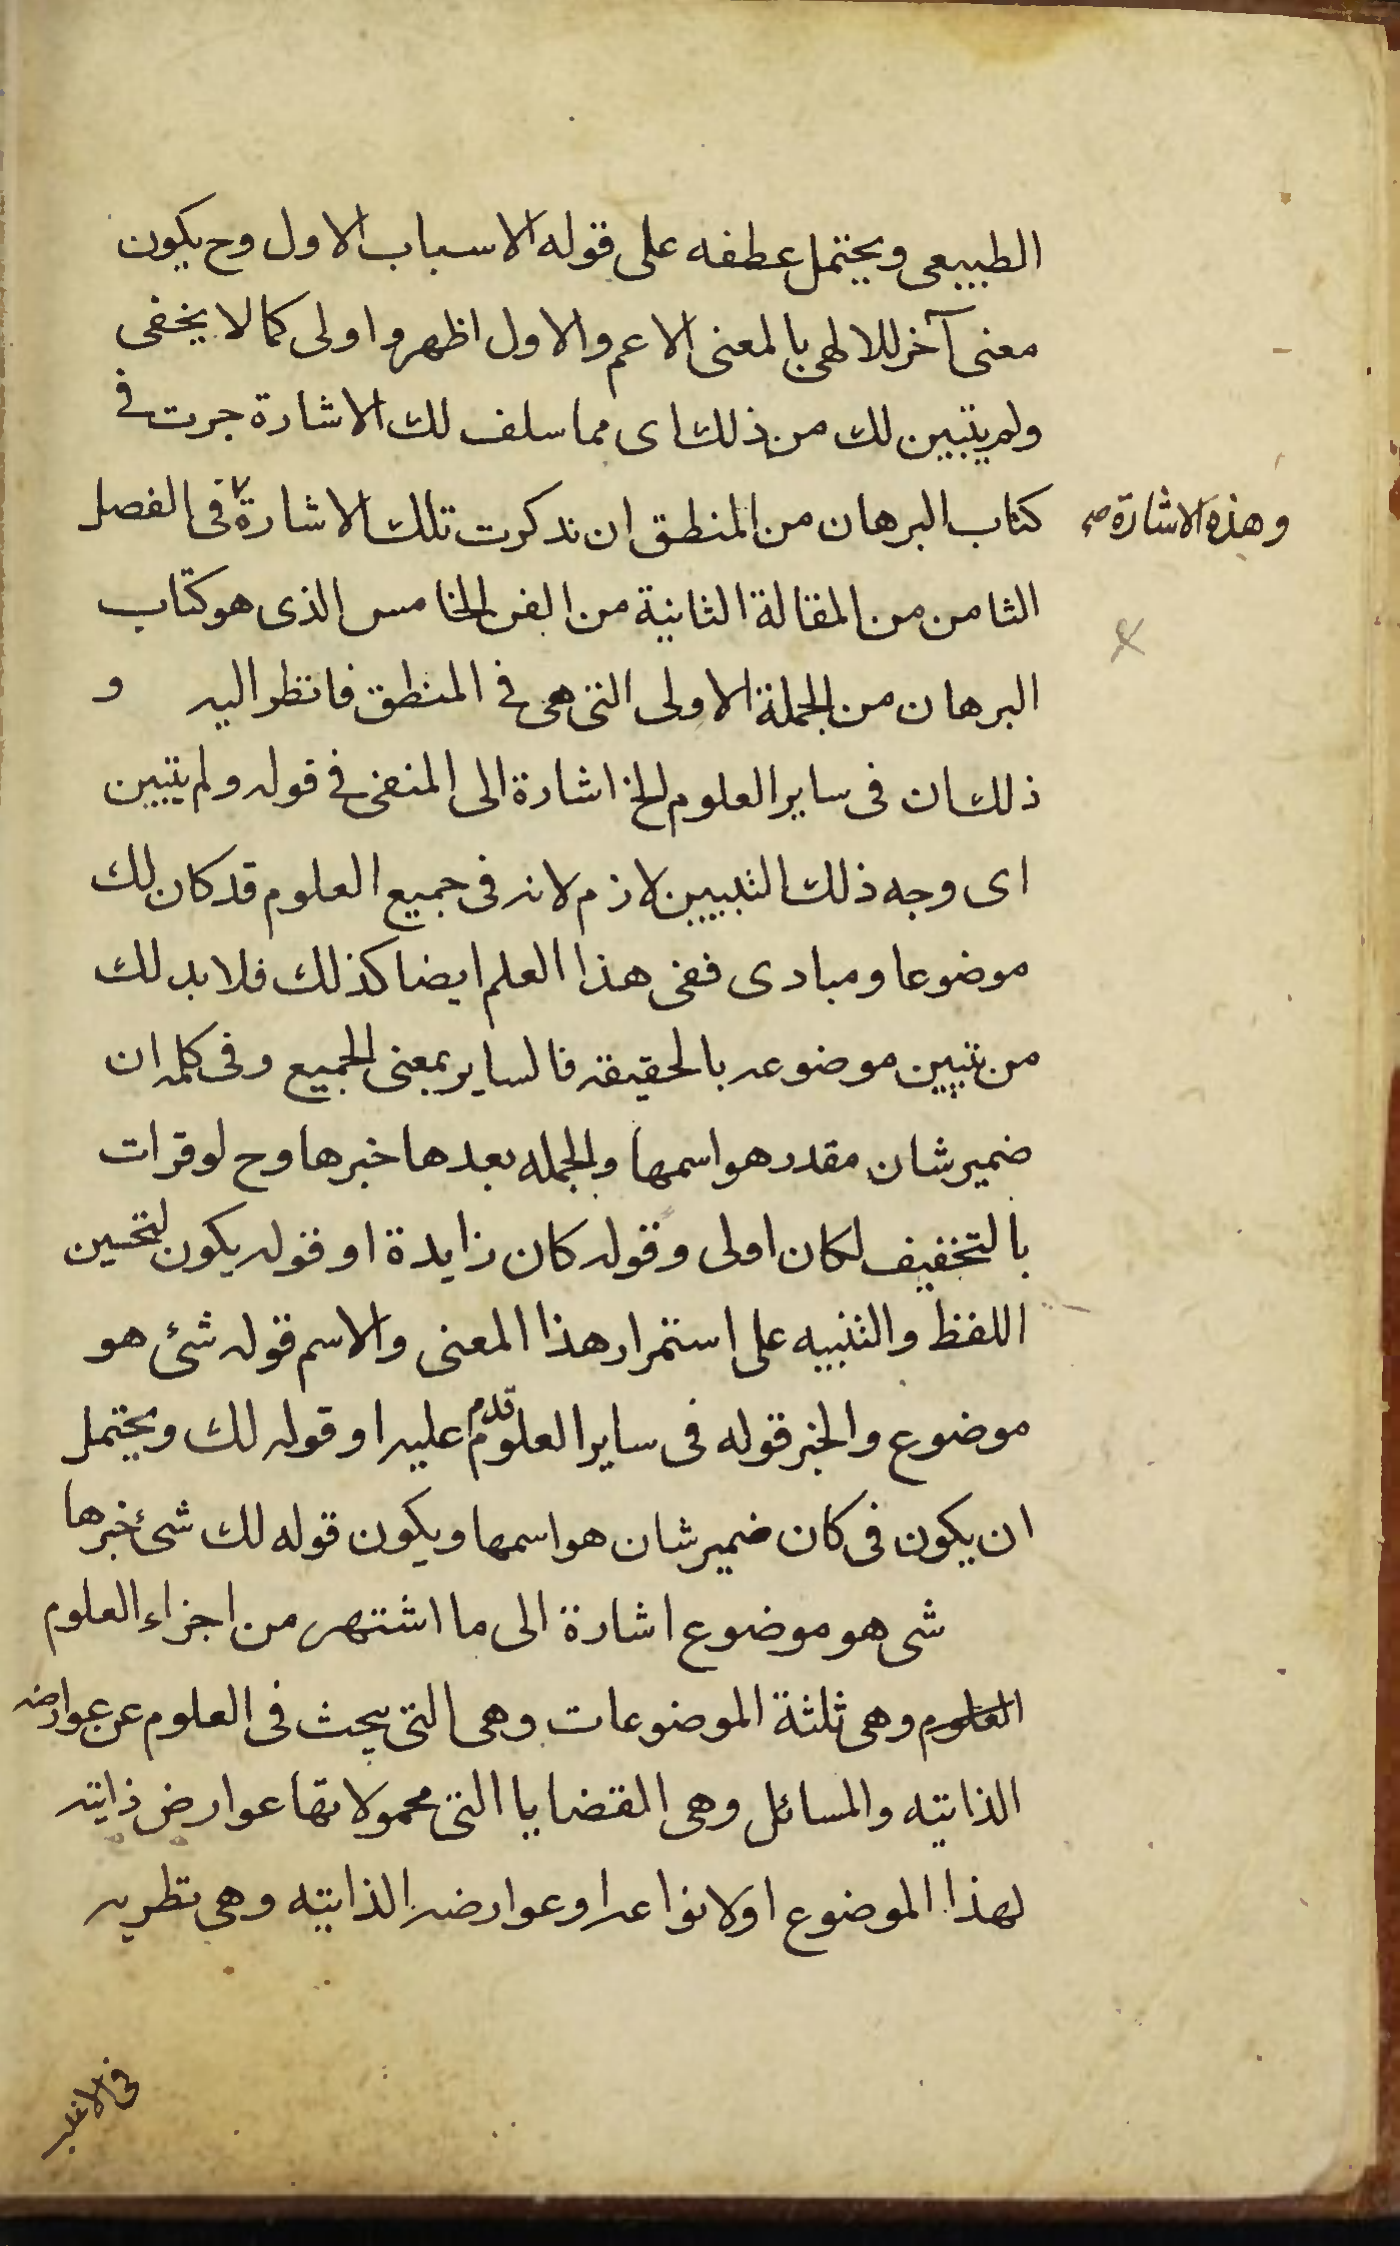 الطبيعى ويحتمل عطفه على قوله الاسباب الاول وح يكون
معنى آخر للالهى بالمعنى الاعم والاول اظهر واولى كما لا يخفى
ولم يتبين لك من ذلك اى مما سلف لك الاشارة جرت فى
كتاب البرهان من المنطق ان تذكرت تلك الاشارة فى الفصل
وهذه الاشارة صح
الثامن من المقالة الثانية من الفن الخامس الذى هو كتاب
البرهان من الجملة الاولى التى هى فى المنطق فانظر اليه و
ذلك ان فى ساير العلوم الخ اشارة الى المنفى فى قوله ولم يتبين
اى وجه ذلك التبيين لازم لانه فى جميع العلوم قد كان لك
موضوعا ومبادى ففى هذا العلم ايضا كذلك فلا بد لك
من تبيين موضوعه بالحقيقه فالساير بمعنى الجميع وفى كلمه ان
ضمير شان مقدر هو اسمها والجمله بعدها خبرها وح لو قرات
بالتخفيف لكان اولى وقوله كان زايدة او قوله يكون لتحسين
اللفظ والتنبيه على استمرار هذا المعنى والاسم قوله شئ هو
موضوع والخبر قوله فى ساير العلوم قدم عليه او قوله لك ويحتمل
ان يكون فى كان ضمير شان هو اسمها ويكون قوله لك شئ خبرها
شى هو موضوع اشارة الى ما اشتهر من اجزاء العلوم
العلوم وهى ثلثة الموضوعات وهى التى يبحث فى العلوم عن عوارضه
الذاتيه والمسائل وهى القضايا التى محمولاتها عوارض ذاتيه
لهذا الموضوع او لانواعه او عوارضه الذاتيه وهى نظريه
فى الاغلب